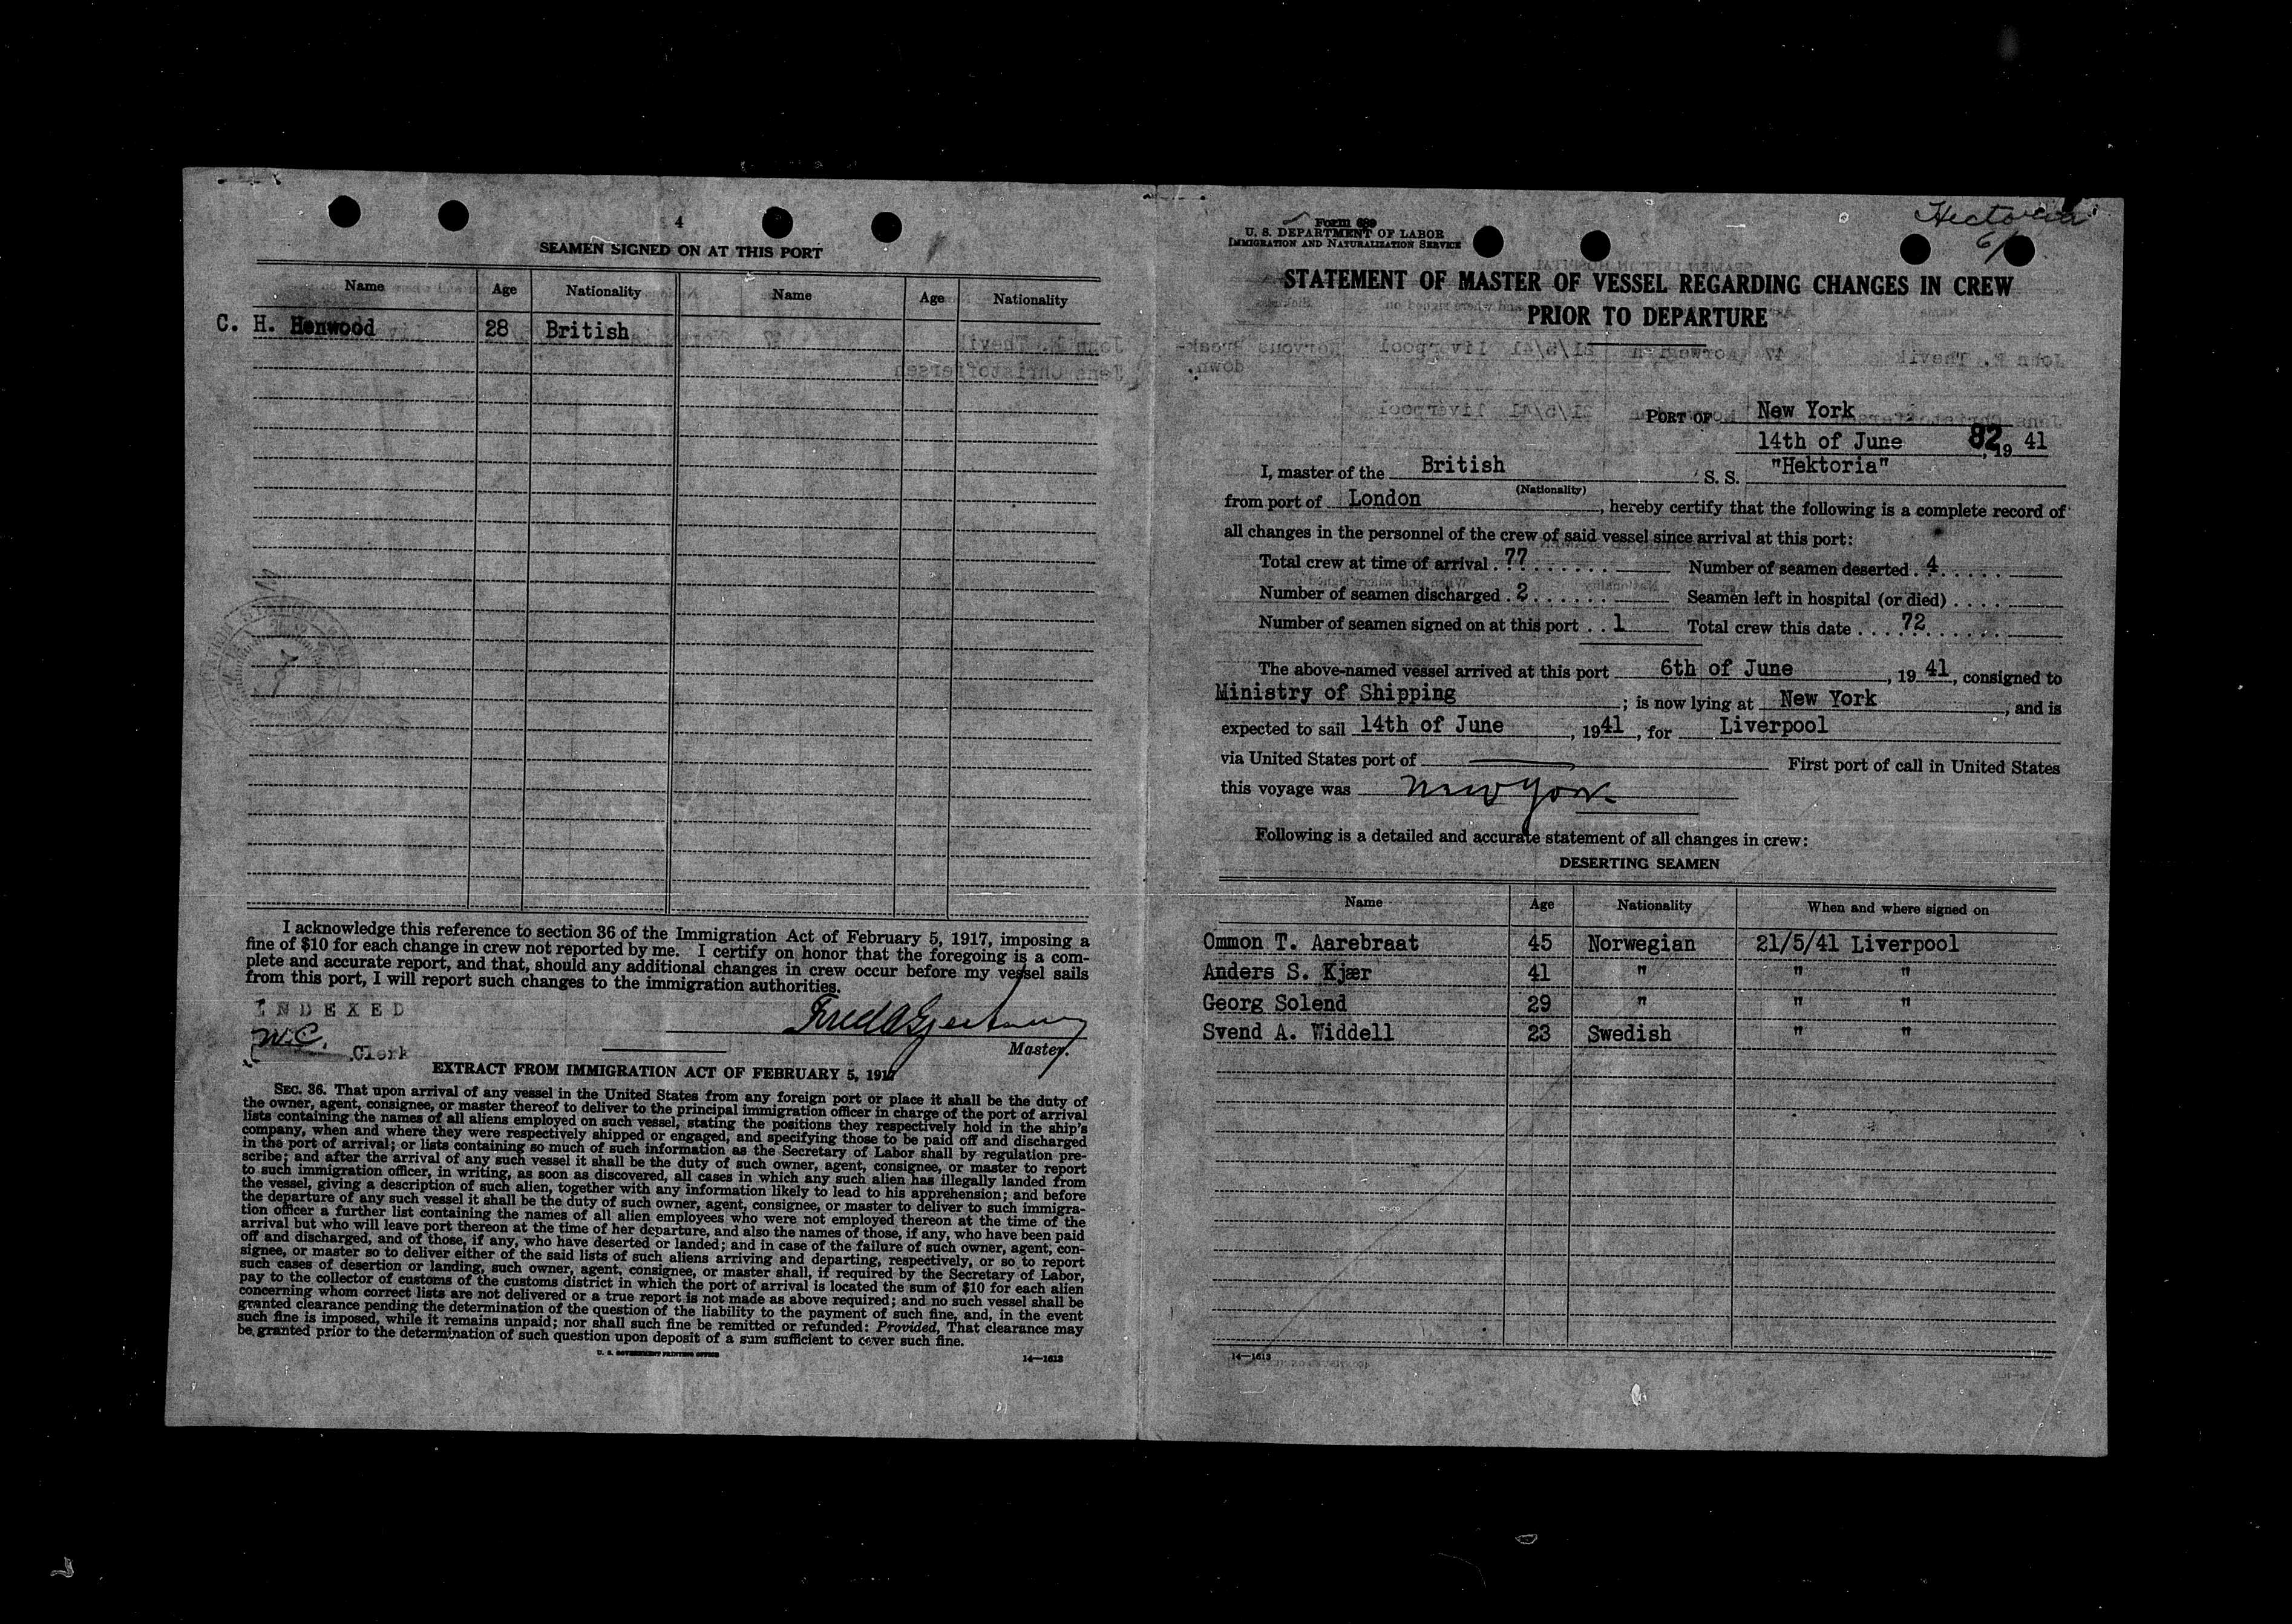 4
SEAMEN SIGNED ON AT THIS PORT
Name Age Nationality Name Age Nationality
C. H. Henwood 28 British
I acknowledge this reference to section 36 of the Immigration Act of February 5, 1917, imposing a
fine of $10 for each change in crew not reported by me. I certify on honor that the foregoing is a com-
plete and accurate report, and that, should any additional changes in crew occur before my vessel sails
from this port, I will report such changes to the immigration authorities.
INDEXED
W.C. Clerk
Master.
EXTRACT FROM IMMIGRATION ACT OF FEBRUARY 5, 1917
SEC. 36. That upon arrival of any vessel in the United States from any foreign port or place it shall be the duty of
the owner, agent, consignee, or master thereof to deliver to the principal immigration officer in charge of the port of arrival
lists containing the names of all aliens employed on such vessel, stating the positions they respectively hold in the ship's
company, when and where they were respectively shipped or engaged, and specifying those to be paid off and discharged
in the port of arrival; or lists containing so much of such information as the Secretary of Labor shall by regulation pre-
scribe; and after the arrival of any such vessel it shall be the duty of such owner, agent, consignee, or master to report
to such immigration officer, in writing, as soon as discovered, all cases in which any such alien has illegally landed from
the vessel, giving a description of such alien, together with any information likely to lead to his apprehension; and before
the departure of any such vessel it shall be the duty of such owner, agent, consignee, or master to deliver to such immigra-
tion officer a further list containing the names of all alien employees who were not employed thereon at the time of the
arrival but who will leave port thereon at the time of her departure, and also the names of those, if any, who have been paid
off and discharged, and of those, if any, who have deserted or landed; and in case of the failure of such owner, agent, con-
signee, or master so to deliver either of the said lists of such aliens arriving and departing, respectively, or so to report
such cases of desertion or landing, such owner, agent, consignee, or master shall, if required by the Secretary of Labor,
pay to the collector of customs of the customs district in which the port of arrival is located the sum of $10 for each alien
concerning whom correct lists are not delivered or a true report is not made as above required; and no such vessel shall be
granted clearance pending the determination of the question of the liability to the payment of such fine, and, in the event
such fine is imposed, while it remains unpaid; nor shall such fine be remitted or refunded: Provided, That clearance may
be granted prior to the determination of such question upon deposit of a sum sufficient to cover such fine.
U. S. GOVERNMENT PRINTING OFFICE 14—1613
Hectoria
6/
Form 689
U. S. DEPARTMENT OF LABOR
IMMIGRATION AND NATURALIZATION SERVICE
STATEMENT OF MASTER OF VESSEL REGARDING CHANGES IN CREW
PRIOR TO DEPARTURE
PORT OF New York
14th of June 82, 19 41
I, master of the British S. S. "Hektoria"
(Nationality)
from port of London, hereby certify that the following is a complete record of
all changes in the personnel of the crew of said vessel since arrival at this port:
Total crew at time of arrival . 77 Number of seamen deserted . 4
Number of seamen discharged . 2 Seamen left in hospital (or died)
Number of seamen signed on at this port . . 1 Total crew this date . . . . 72
The above-named vessel arrived at this port 6th of June, 19 41, consigned to
Ministry of Shipping; is now lying at New York, and is
expected to sail 14th of June, 19 41, for Liverpool
via United States port of First port of call in United States
this voyage was New York
Following is a detailed and accurate statement of all changes in crew:
DESERTING SEAMEN
Name Age Nationality When and where signed on
Ommon T. Aarebraat 45 Norwegian 21/5/41 Liverpool
Anders S. Kjær 41 " " "
Georg Solend 29 " " "
Svend A. Widdell 23 Swedish " "
14—1613